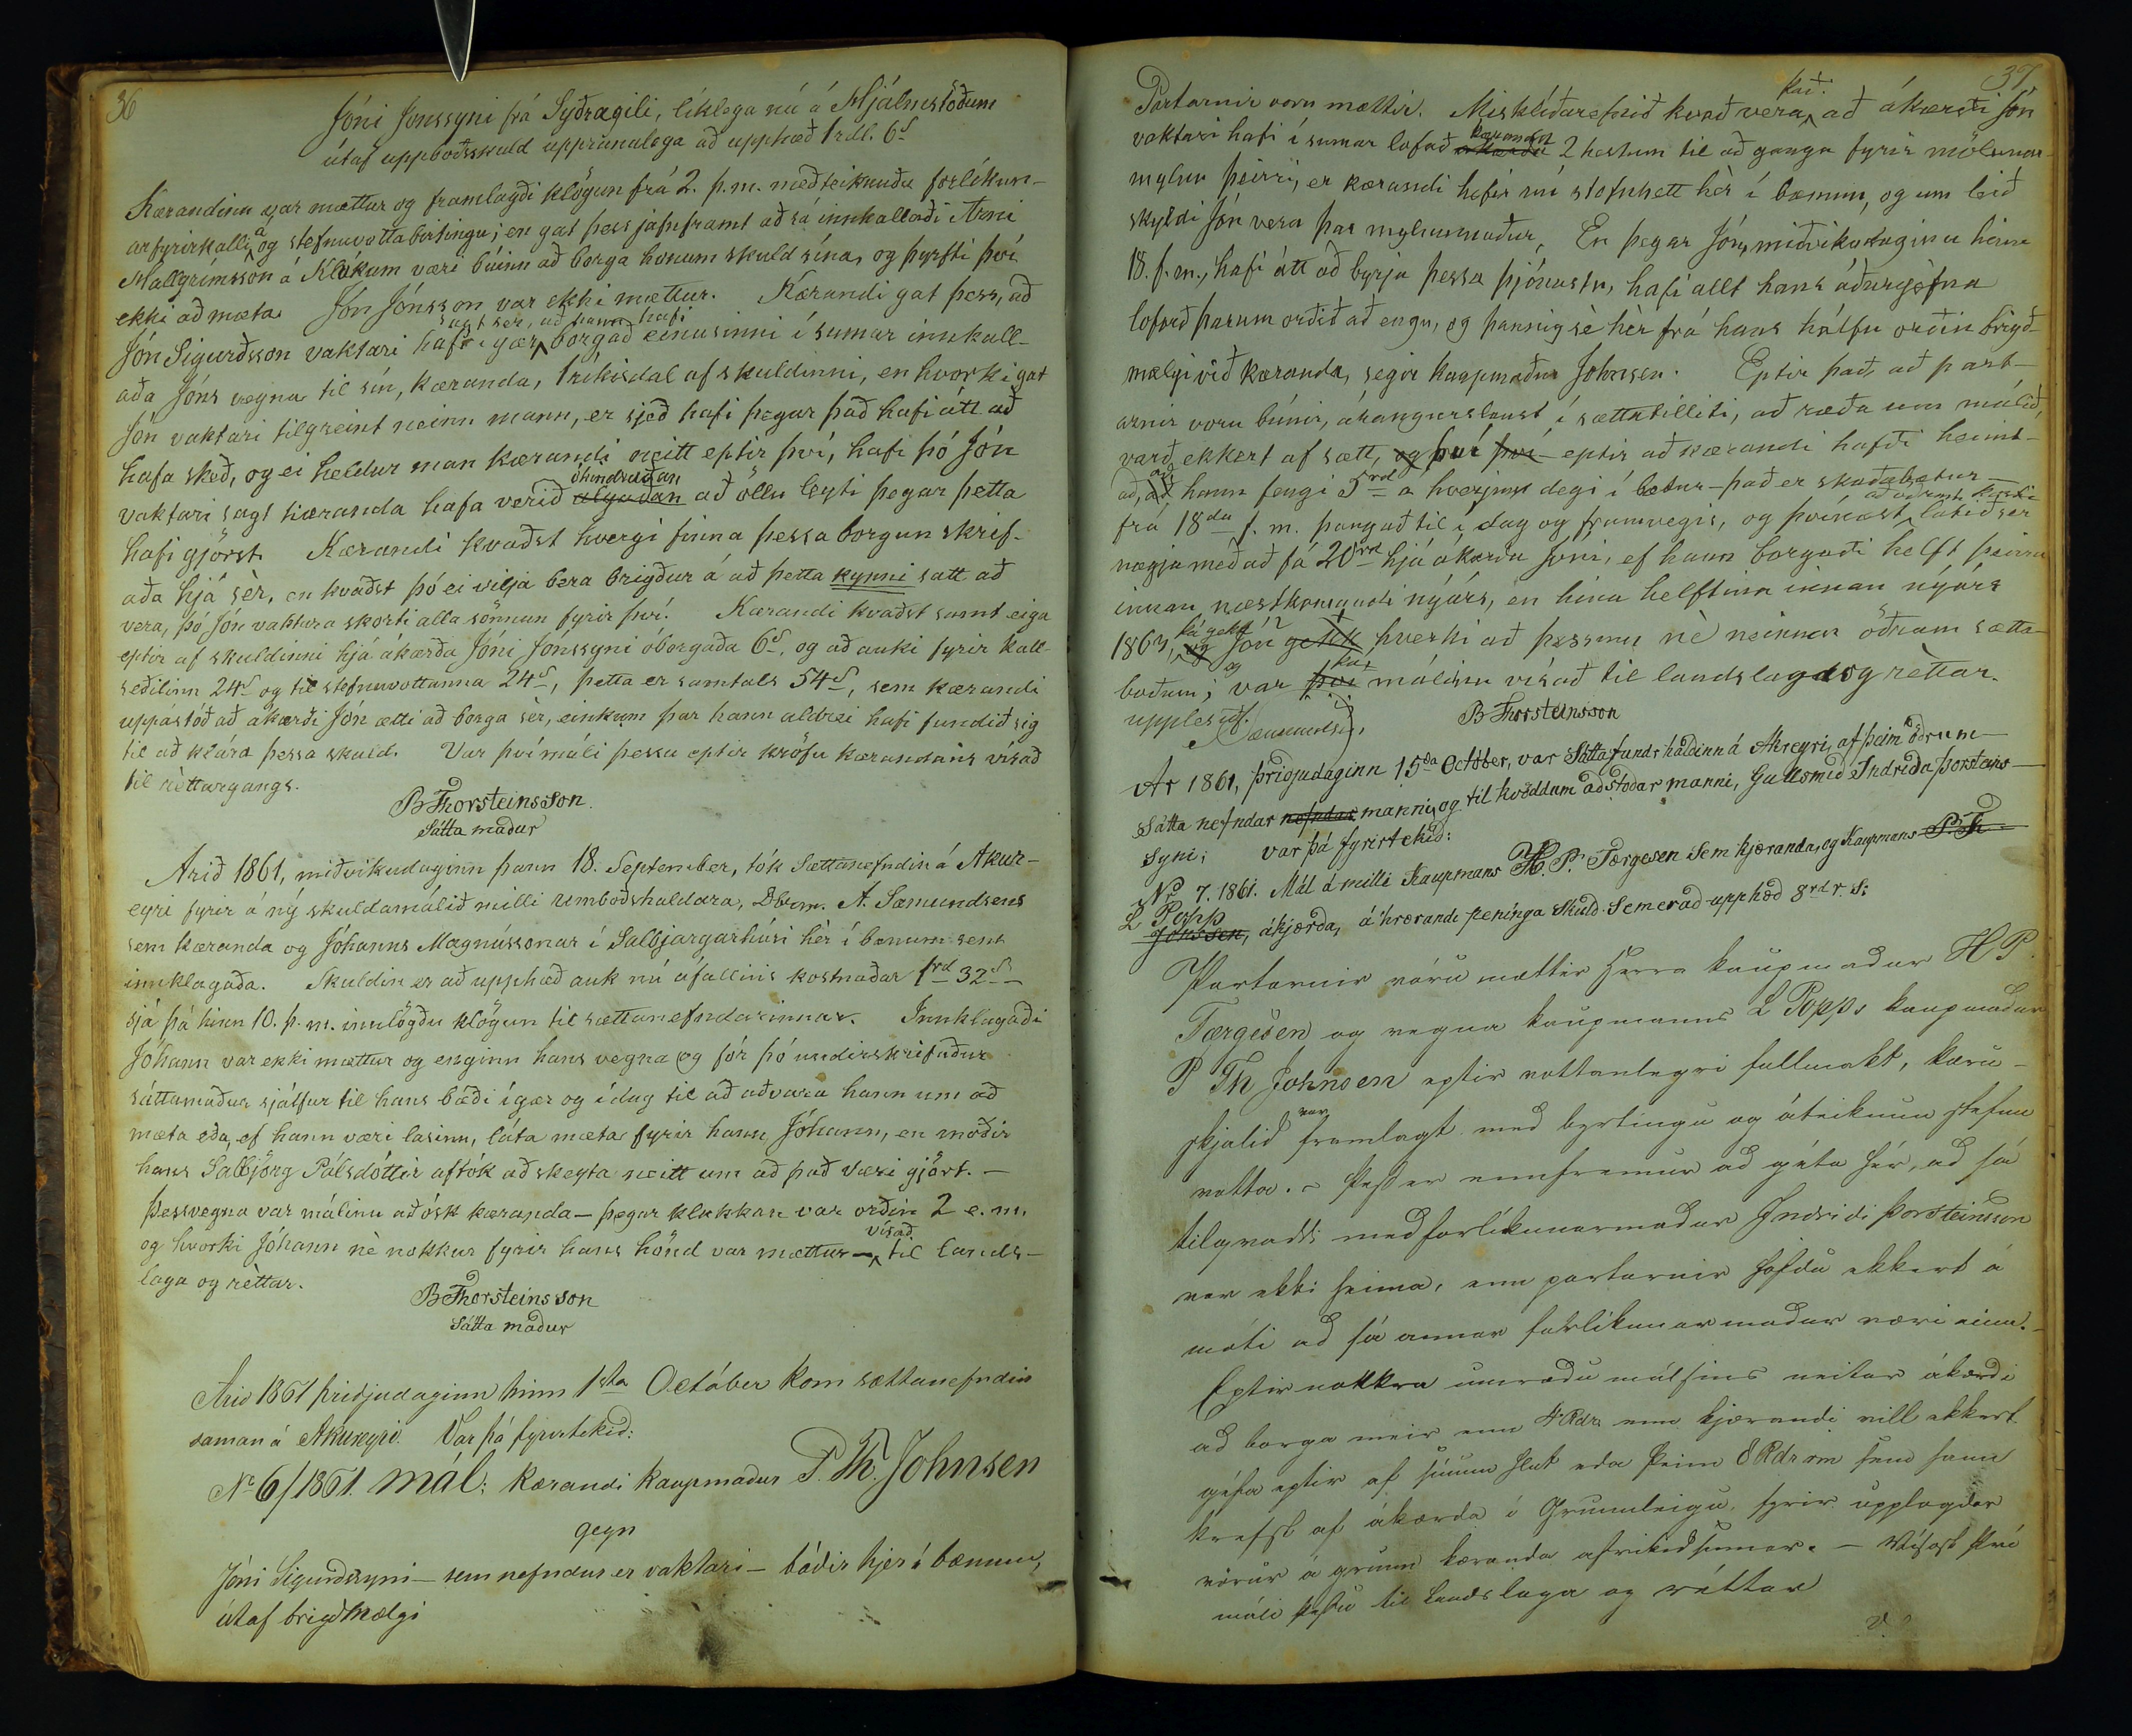 36
Jóni Jónssyni frá Syðragili, líklega nú á Hjálmstöðum
útaf uppboðsskuld upprunalega að upphæð 1 rdl. 6 s
Kærandinn var mættur og framlagði klögun frá 2. þ.m. með teiknuðu forlíkun-
arfyrirkalli og stefnuvottabirtingu; en gat þess jafnframt að sá innkallaði Árni
Hallgrímsson á Klúkum væri búinn að borga honum skuld sína, og þyrfti því
ekki að mæta. Jón Jónsson var ekki mættur. Kærandi gat þess, að
sagt sér, að hann hafi
Jón Sigurðsson vaktari hafi í gær borgað einusinni í sumar innkall-
aða Jóns vegna til sín, kæranda, 1 ríkisdal af skuldinni, en hvorki gat
Jón vaktari tilgreint neinn mann, er sjeð hafi þegar það hafi átt að
hafa skeð, og ei heldur man kærandi neitt eptir því, hafi þó Jón
óhindraðan
vaktari sagt kæranda hafa verið algaðan að öllu leyti þegar þetta
hafi gjörst. Kærandi kvaðst hvergi finna þessa borgun skrif-
aða hjá sèr, en kvaðst þó ei vilja bera brigður á að þetta kynni satt að
vera, þó Jón vaktara skorti alla sönnun fyrir því. Kærandi kvaðst samt eiga
eptir af skuldinni hjá ákærða Jóni Jónssyni óborgaða 6 s, og að auki fyrir kall-
seðilinn 24 s og til stefnuvottanna 24 s, þetta er samtals 54 s, sem kærandi
uppástóð að ákærði Jón ætti að borga sèr, einkum þar hann aldrei hafi fundið sig
til að klára þessa skuld. Var því máli þessu eptir kröfu kærandans vísað
til rèttargangs.
B Thorsteinsson.
Sátta maður
Árið 1861, miðvikudaginn þann 18. September, tók Sættanefndin á Akur-
eyri fyrir á ný skuldamálið milli umboðshaldara, Dbrm. A. Sæmundsens
sem kæranda og Jóhanns Magnússonar í Salbjargarhúsi hèr í bænum sem
innklagaða. Skuldin er að upphæð auk nú áfallins kostnaðar 1 rd 32 s
sjá þá hinn 10. þ.m. innlögðu klögun til sættanefndarinnar. Innklagaði
Jóhann var ekki mættur og enginn hans vegna og fór þó undirskrifaður
sáttamaður sjálfur til hans bæði í gær og í dag til að aðvara hann um að
mæta eða, ef hann væri lasinn, láta mæta fyrir hann Jóhann, en móðir
hans Salbjörg Pálsdóttir aftók að skeyta neitt um að það væri gjört. –
Þessvegna var málinu að ósk kæranda – þegar klukkan var orðin 2 e.m.
vísað
og hvorki Jóhann nè nokkur fyrir hans hönd var mættur – til lands-
laga og rèttar.
B Thorsteinsson
Sátta maður
Árið 1861 þriðjudaginn hinn 1sta Octóber kom sættanefndin
saman á Akureyri. Var þá fyrirtekið:
No 6/1861. mál: kærandi kaupmaður P. Th. Johnsen
gegn
Jóni Sigurðssyni – sem nefndur er vaktari – báðir hjer í bænum,
útaf brigðmælgi
37
Partarnir voru mættir. Misklíðarefnið kvað vera það: að ákærði Jón
kærandan
vaktari hafi í sumar lofað ákærða 2 hestum til að ganga fyrir mölunar-
mylnu þeirri, er kærandi hefir nú stofnsett hèr í bænum, og um leið
skyldi Jón vera þar mylnumaður, En þegar Jón, miðvikudaginn hinn
18. f.m., hafi átt að byrja þessa þjónustu, hafi allt hans áðurgefna
loforð þarum orðið að engu, og þannig sè hèr frá hans hálfu orðin brigð-
mælgi við kæranda, segir kaupmaður Johnsen. Eptir það, að part-
arnir voru búnir, árangurslaust í sættatilliti, að ræða um málið,
varð ekkert af sætt, og því því eptir að kærandi hafði heimt-
að, að hann fengi 5 rd á hverjum degi í bætur – það er skaðabætur –
frá 18da f.m. þangað til í dag og framvegis, og þvínæst látið sèr
nægja með að fá 20 rd hjá ákærða Jóni, ef hann borgaði helft þeirra
innan næstkomandi nýárs, en hina helftina innan nýárs
1863, þá gekk Jón gekk hverki að þessum nè neinum öðrum sætta-
boðum; og var því málinu vísað til landslaga og rèttar.
upplesið.
Sæmundsen,
B Thorsteinsson
Ár 1861, þriðjudaginn 15da October, var Sáttafundr haldinn á Akreyri, af þeim öðrum
Sátta nefndar nefndar manni, og til kvöddum aðstoðar manni, Gullsmið Indriða Þorsteins-
syni; var þá fyrirtekið:
No 7. 1861. Mál á milli Kaupmans H. P. Tærgesen Sem kjæranda, og Kaupmans P. Th
L Popp
Johnsen, ákjærða, áhrærandi penínga skuld Sem er að upphæð 8 rd r. S:
Partarnir vóru mættir Herra kaupmaður H P.
Tærgesen og vegna kaupmanns L Popps kaupmaður
P Th Johnsen eptir vottanlegri fullmakt, kæru-
skjalið var framlagt með byrtíngu og áteiknun stefnu
votta. – Þess er ennfremur að géta hér, að sá
tilqvaddi meðforlíkunarmaður Indridi Þorsteinsson
var ekki heima, enn partarnir höfdu ekkert á
móti að sá annar forlíkunarmadur væri einn. –
Eptir nokkra umrædu málsins neitar ákærdi
ad borga meir enn 4 Rdr enn kjærandi vill ekkert
géfa eptir af sínum hlut eda þeim 8 Rdr sm sem hann
krefst af ákærda í Grunnleigu fyrir upplagdar
vörur á grunn kæranda afrikidsinnar. – Vísast því
máli þessu til Landslaga og réttar